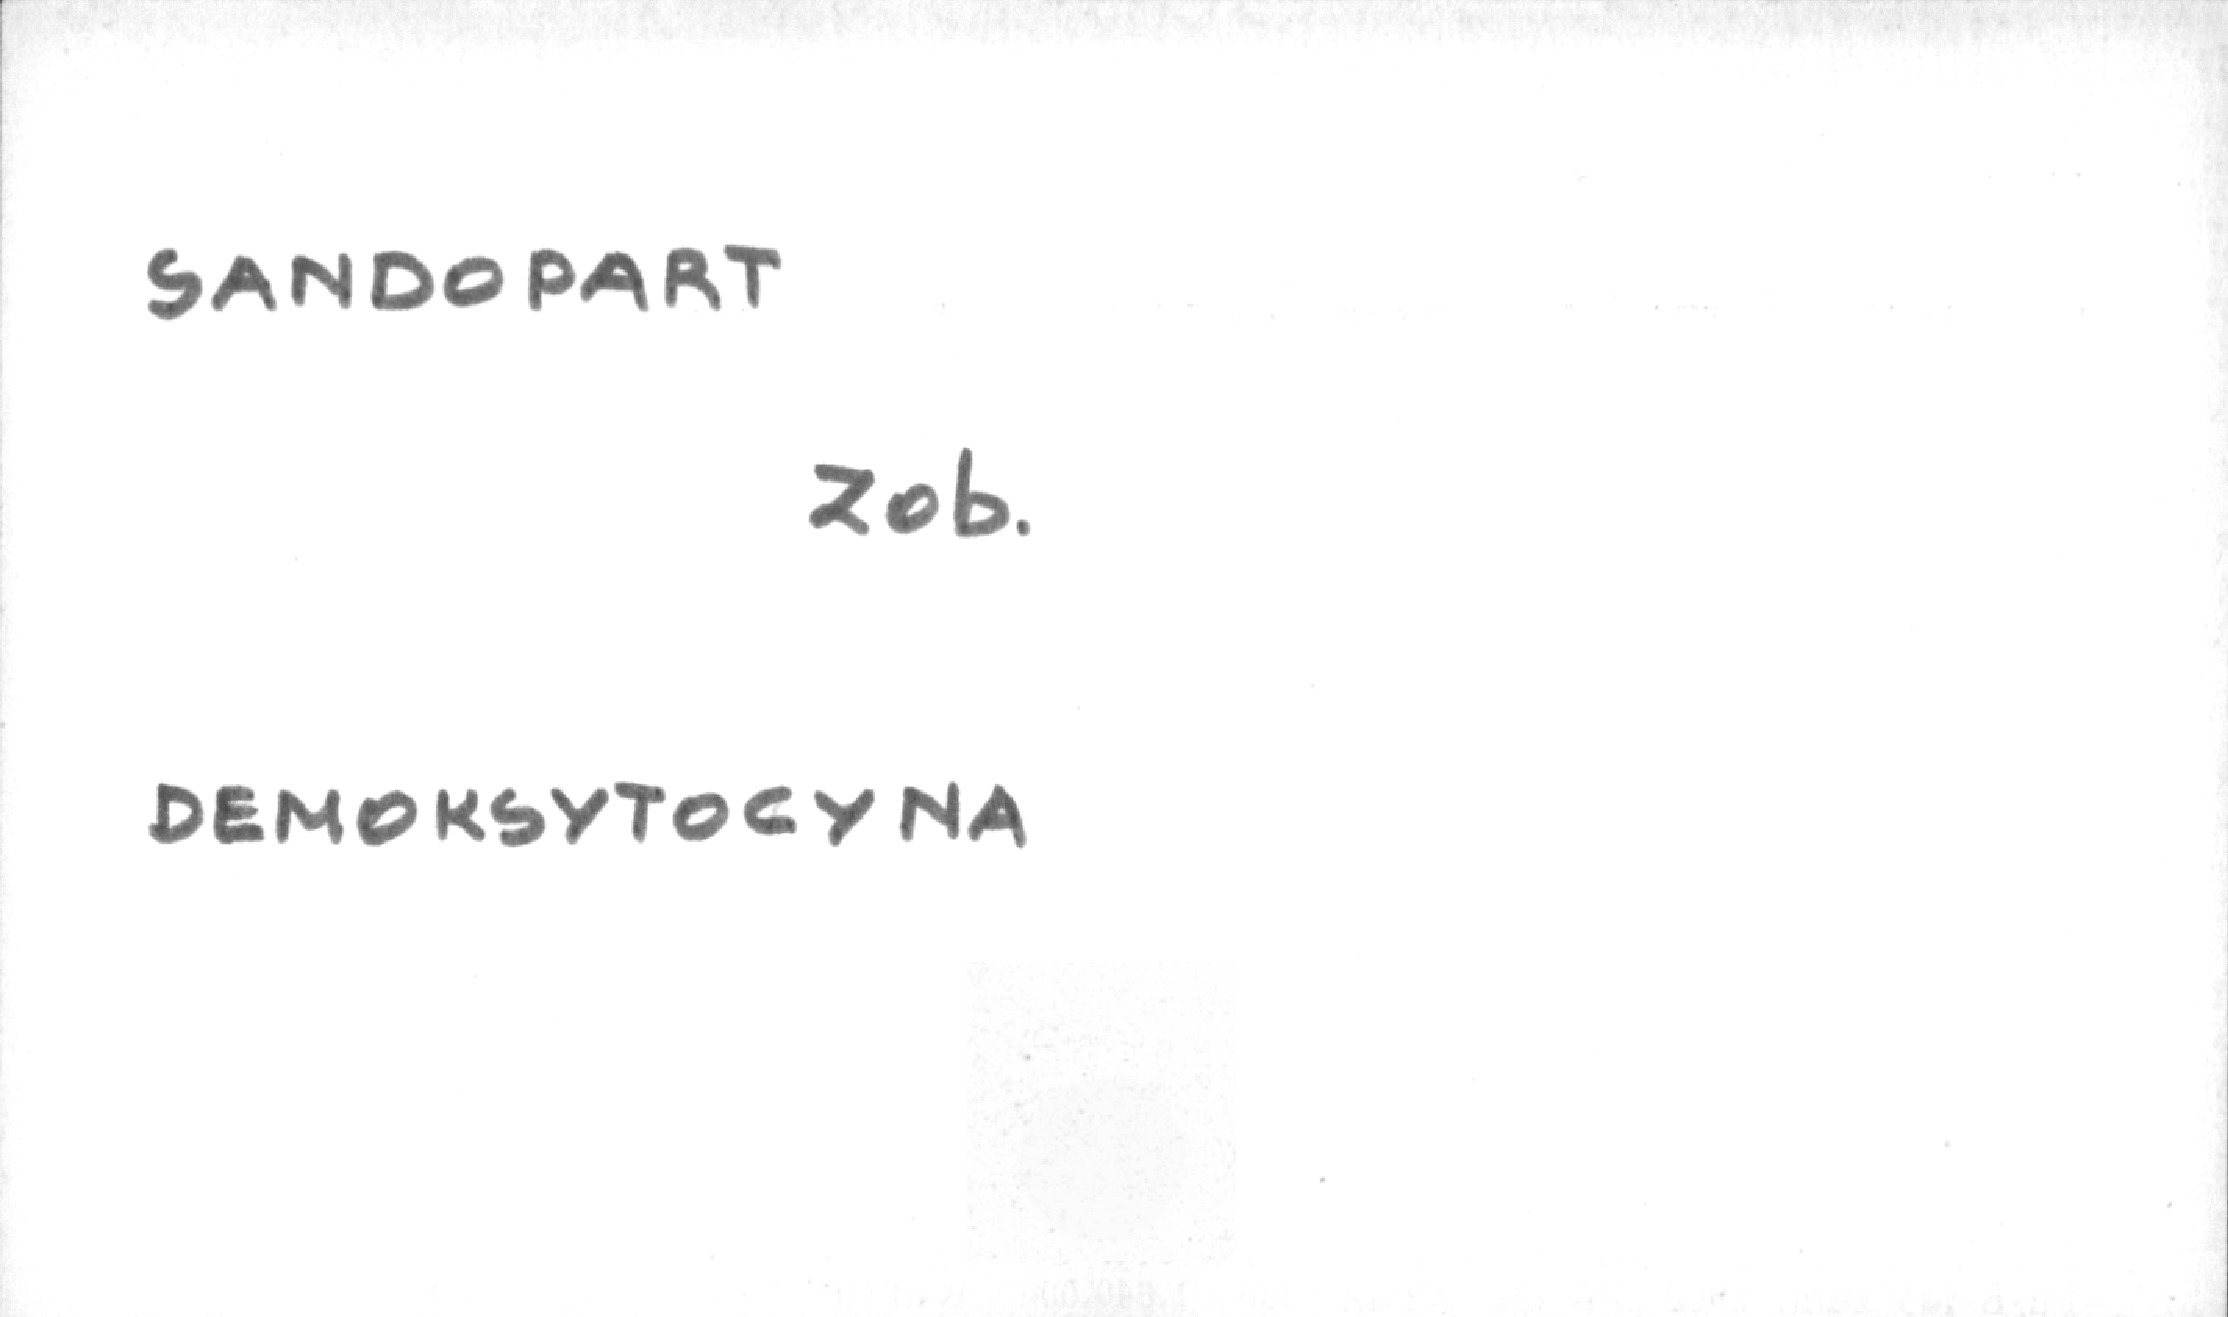 SANDOPART
Zob.
DEMOKSYTOCYNA